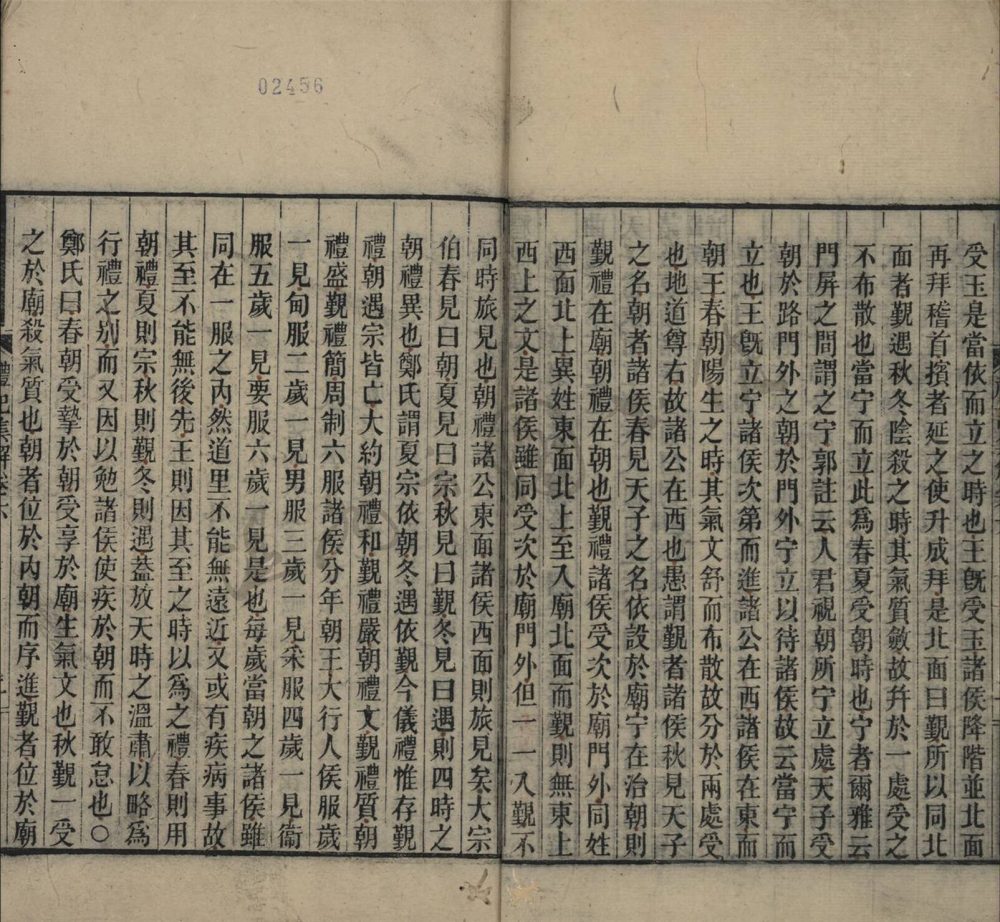 受玉是當依而立之時也王旣受玉諸侯降階並北面
再拜稽首擯者延之使升成拜是北面曰覲所以同北
面者覲遇秋冬陰殺之時其氣質斂故幷於一處受之
不布散也當宁而立此爲春夏受朝時也宁者爾雅云
門屏之間謂之宁郭註云人君視朝所宁立處天子受
朝於路門外之朝於門外宁立以待諸侯故云當宁而
立也王旣立宁諸侯次第而進諸公在西諸侯在東而
朝王春朝陽生之時其氣文舒而布散故分於兩處受
也地道尊右故諸公在西也愚謂覲者諸侯秋見天子
之名朝者諸侯春見天子之名依設於廟宁在治朝則
覲禮在廟朝禮在朝也覲禮諸侯受次於廟門外同姓
西面北上異姓東面北上至入廟北面而覲則無東上
西上之文是諸侯雖同受次於廟門外但一一入覲不
同時旅見也朝禮諸公東面諸侯西面則旅見矣大宗
伯春見曰朝夏見曰宗秋見曰覲冬見曰遇則四時之
朝禮異也鄭氏謂夏宗依朝冬遇依覲今儀禮惟存覲
禮朝遇宗皆亡大約朝禮和覲禮嚴朝禮文覲禮質朝
禮盛覲禮簡周制六服諸侯分年朝王大行人侯服歲
一見甸服二歲一見男服三歲一見采服四歲一見衞
服五歲一見要服六歲一見是也每歲當朝之諸侯雖
同在一服之內然道里不能無遠近又或有疾病事故
其至不能無後先王則因其至之時以爲之禮春則用
朝禮夏則宗秋則覲冬則遇葢放天時之溫肅以略爲
行禮之別而又因以勉諸侯使疾於朝而不敢怠也○
鄭氏曰春朝受摯於朝受享於廟生氣文也秋覲一受
之於廟殺氣質也朝者位於內朝而序進覲者位於廟
禮記集解卷六
02456